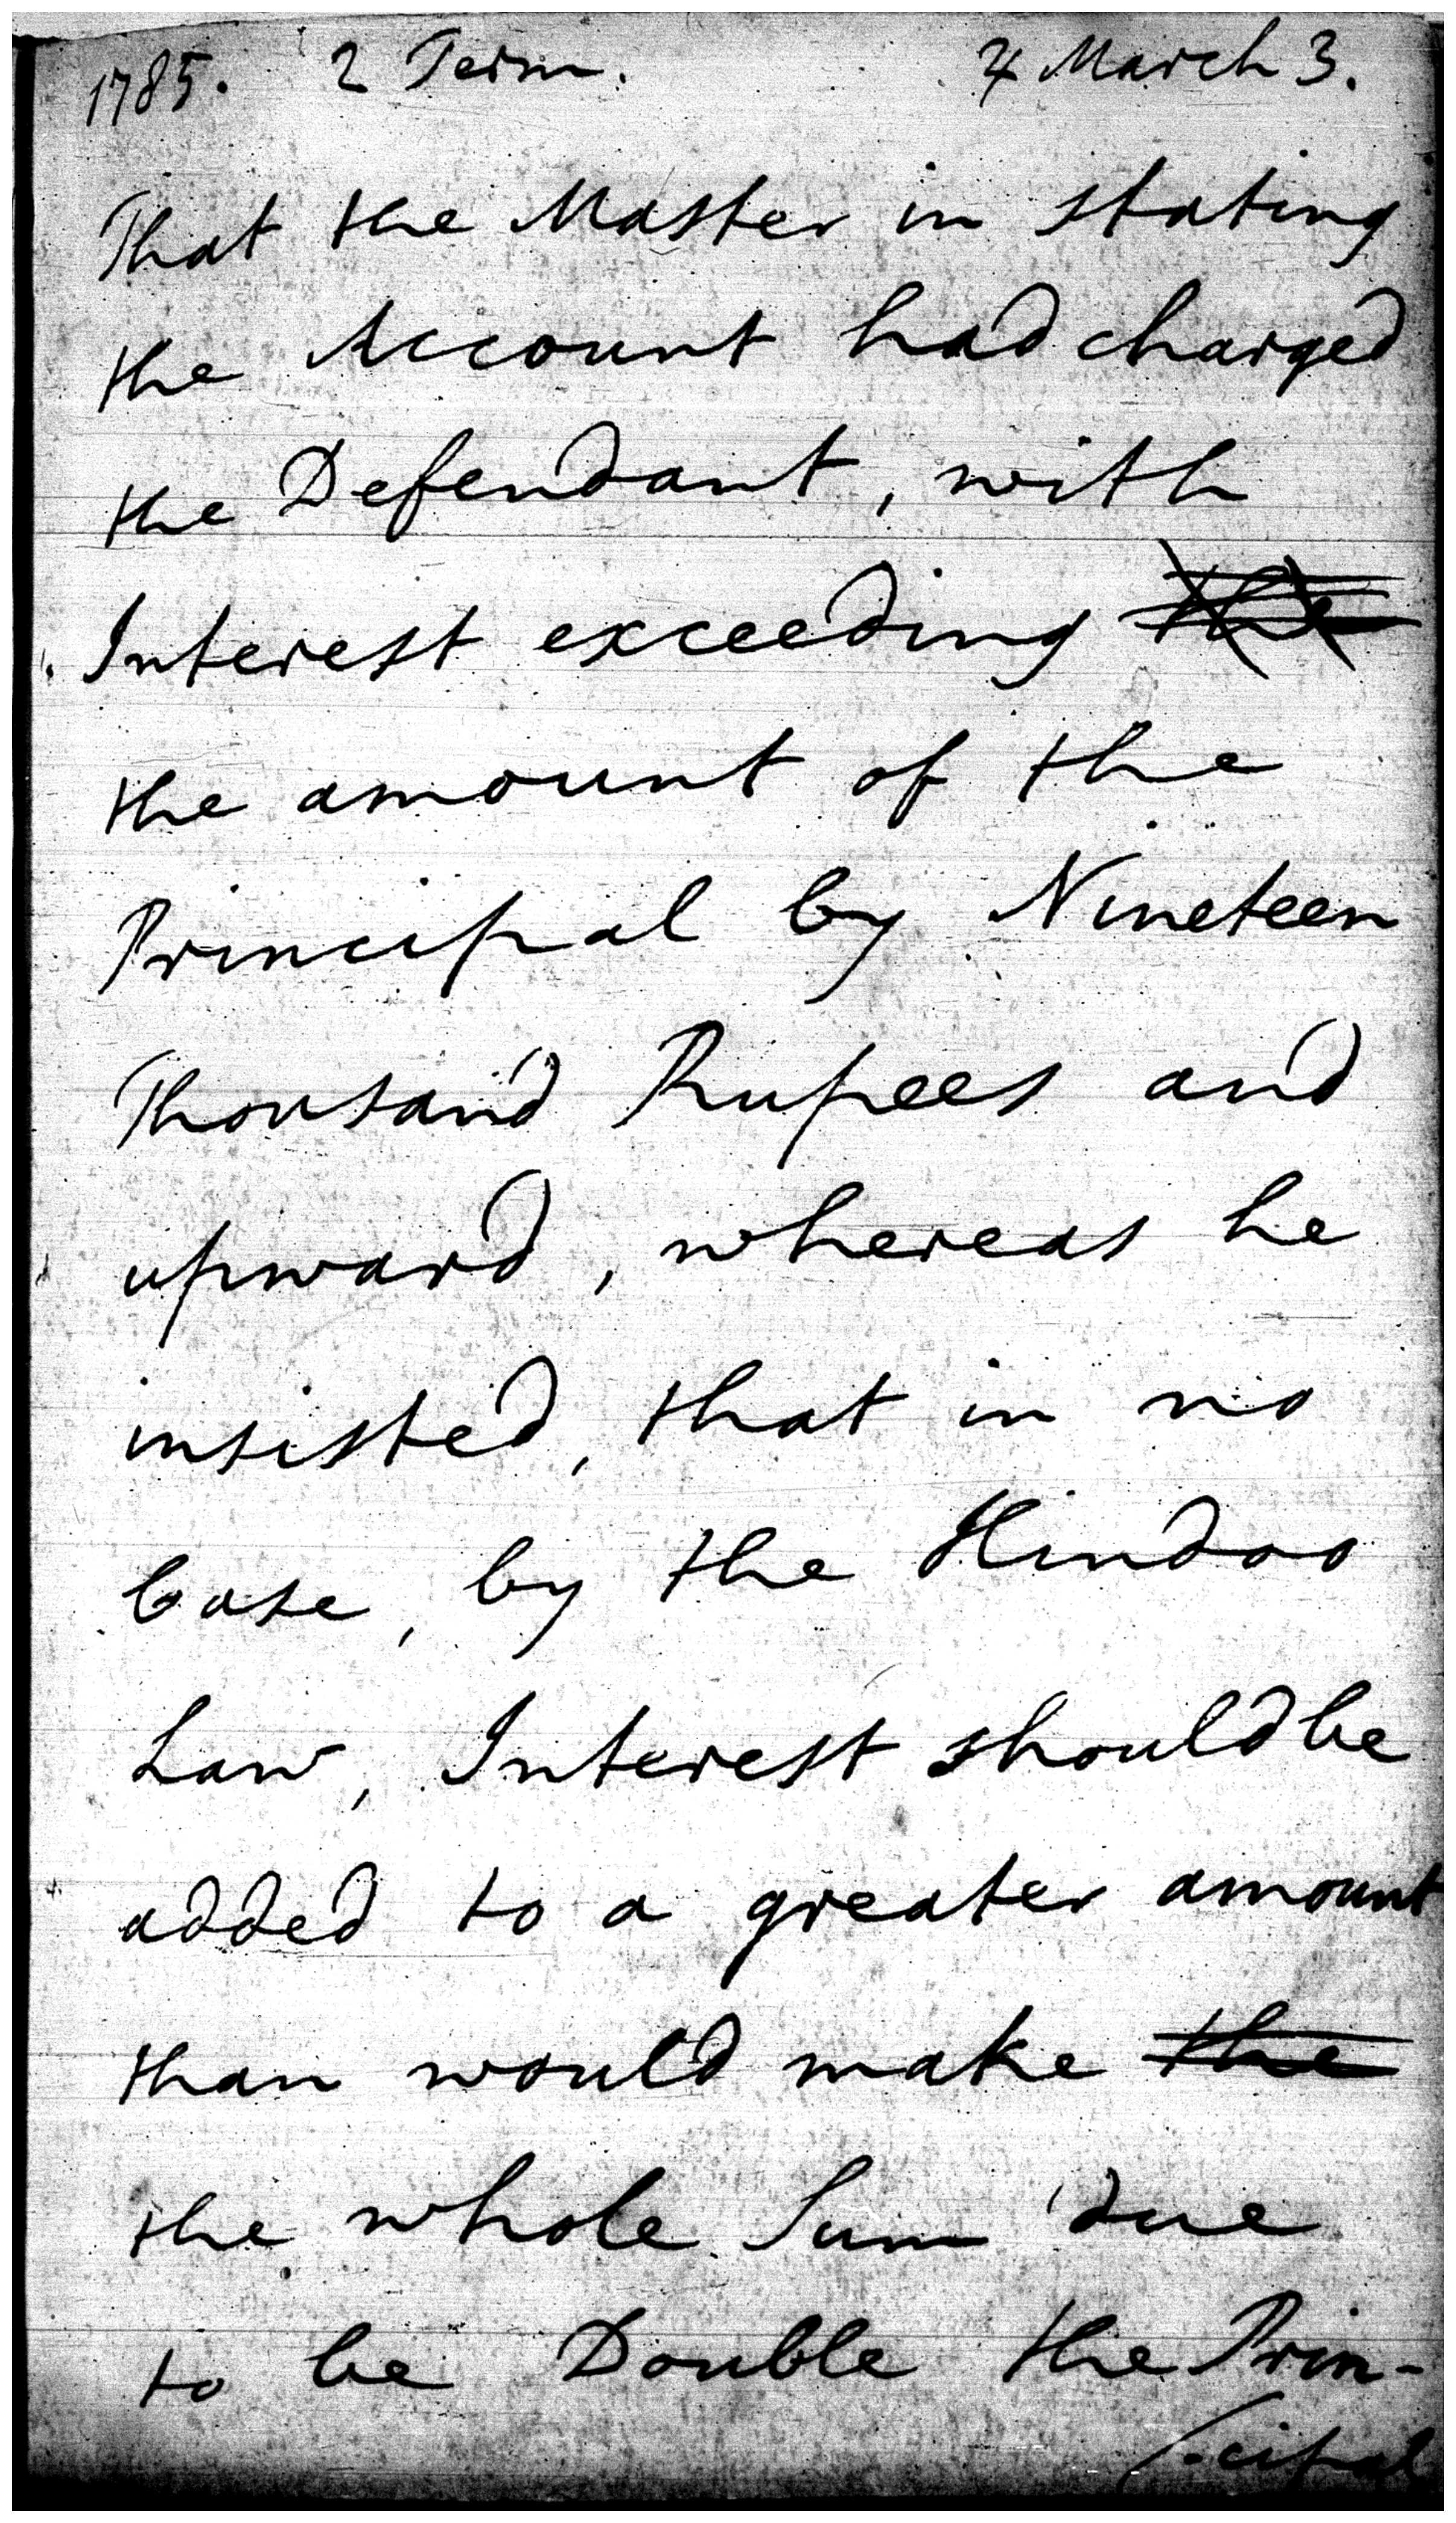 1785. 2 Term. 4 March 3.
That the Master in stating
the Account had charged
the Defendant, with
Interest exceeding the
the amount of the
Principal by Nineteen
Thousand Rupees and
upward, whereas he
insisted, that in no
Case, by the Hindoo
Law, Interest should be
added to a greater amount
than would make the
the whole Sum due
to be Double the Prin-
cipal